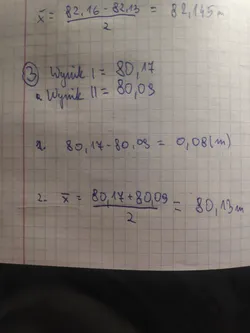 x̄ = 82,16 - 82,13 / 2 = 82,145 m
③ Wynik I = 80,17
a. Wynik II = 80,09
2. 80,17 - 80,09 = 0,08 (m)
2. x̄ = 80,17 + 80,09 / 2 = 80,13 m